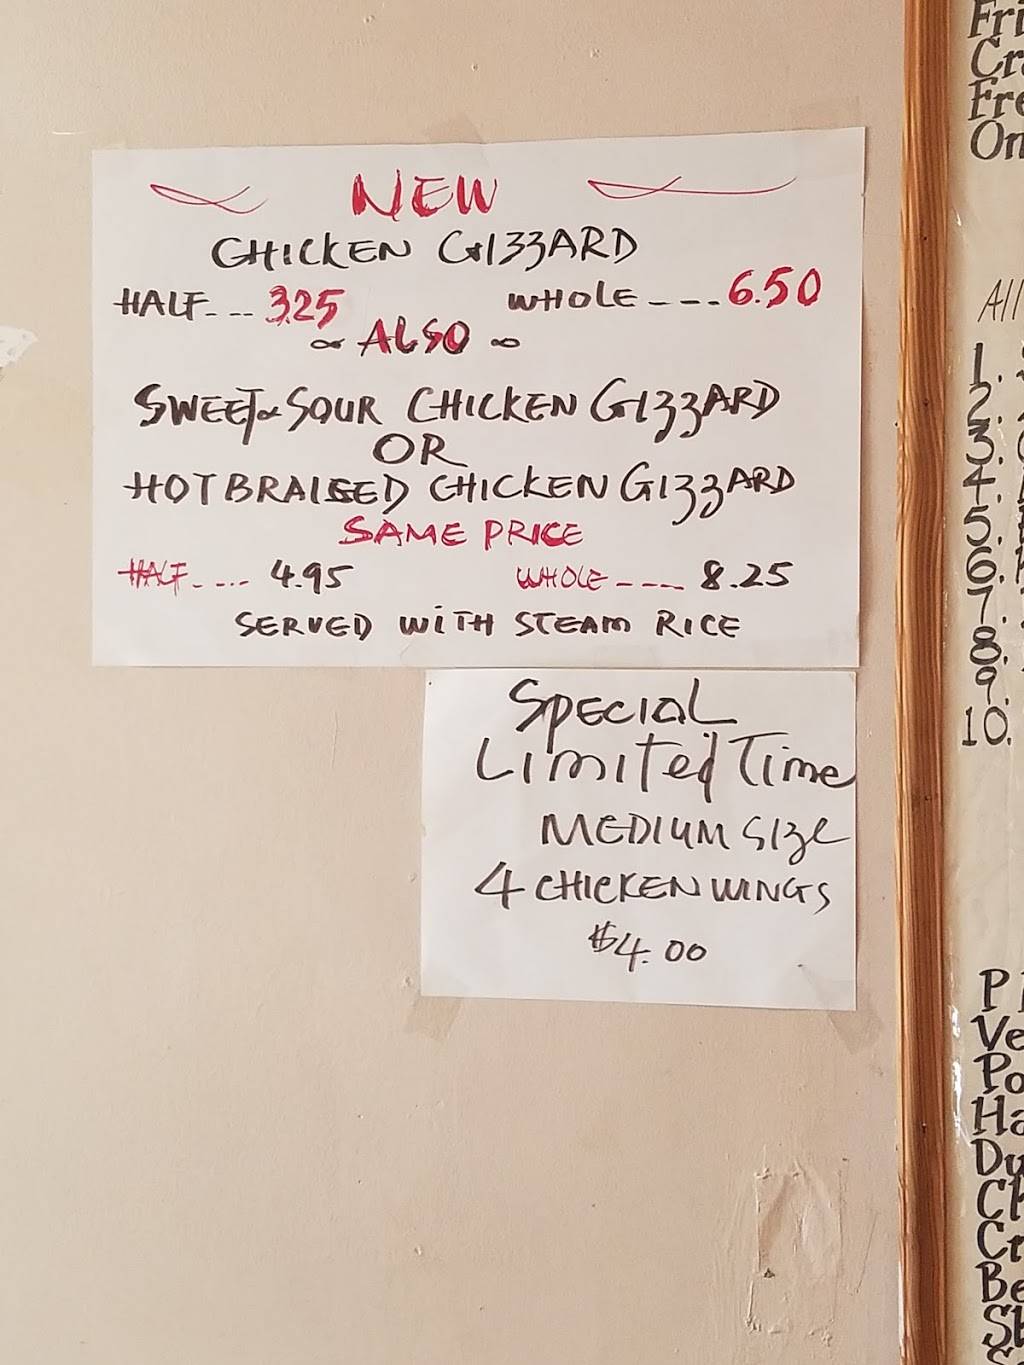 NEW
CHICKEN GIZZARD
HALF... 3.25 WHOLE ---- 6.50
ALSO
SWEET & SOUR CHICKEN GIZZARD
OR
HOT BRAISED CHICKEN GIZZARD
SAME PRICE
HALF..... 4.95 WHOLE ---- 8.25
SERVED WITH STEAM RICE
SPECIAL
Limited Time
MEDIUM SIZE
4 CHICKEN WINGS
$4.00
All
1.
2.
3.
4.
5.
6.
7.
8.
9.
10.